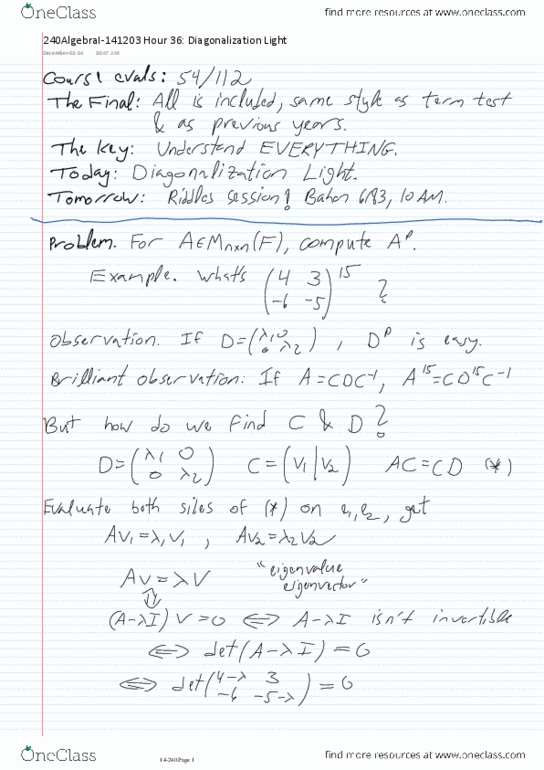 OneClass
find more resources at www.oneclass.com
240AlgebraI-141203 Hour 36: Diagonalization Light
December-03-14 10:47 AM
Cours! evals: 54/112
The Final: All is included, same style as term test
& as previous years.
The key: Understand EVERYTHING.
Today: Diagonalization Light.
Tomorrow: Riddles session! Bahen 6183, 10AM.
Problem. For A∈Mn×n(F), compute A^p.
Example. what's (4 3 / -6 -5)^15 ?
Observation. If D=(λ1 0 / 0 λ2), D^p is easy.
Brilliant observation: If A=CDC^-1, A^15=CD^15C^-1
But how do we find C & D?
D=(λ1 0 / 0 λ2) C=(v1|v2) AC=CD (*)
Evaluate both sides of (*) on e1,e2, get
Av1=λ1v1, Av2=λ2v2
Av=λv "eigenvalue
eigenvector"
⇕
(A-λI)v=0 ⇔ A-λI isn't invertible
⇔ det(A-λI)=0
⇔ det(4-λ 3 / -6 -5-λ)=0
OneClass
14-240 Page 1
find more resources at www.oneclass.com